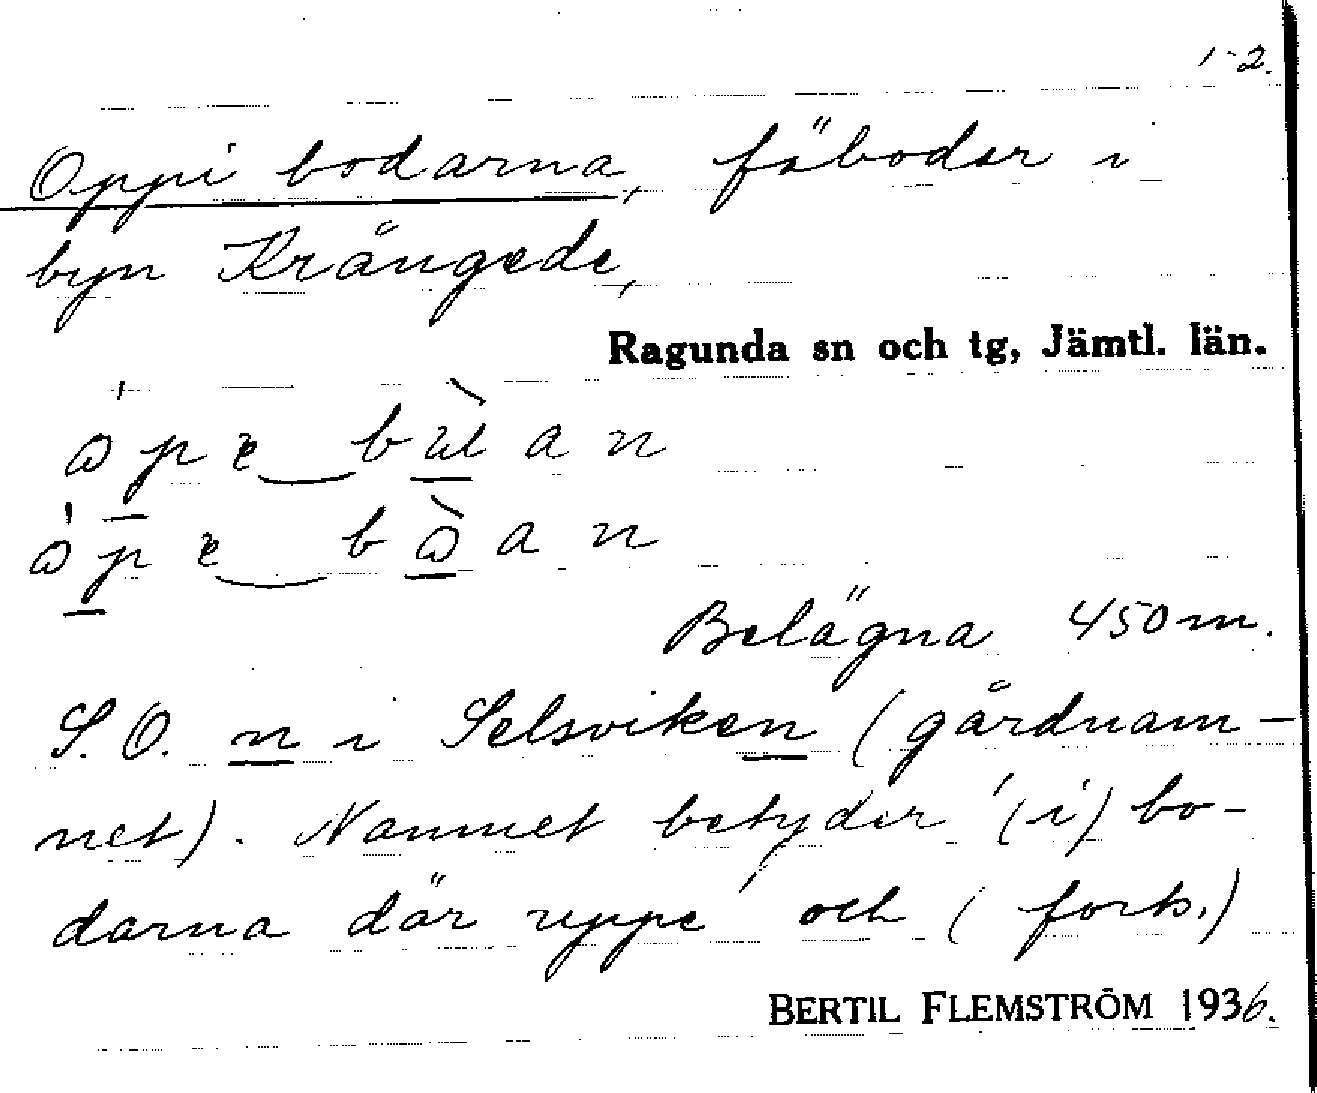 1-2.
Oppi bodarna, fäboder i
byn Krångede,
Ragunda sn och tg, Jämtl. län.
Belägna 450 m.
S.O. n i Selsviken (gårdnam-
net). Namnet betyder '(i) bo-
darna där uppe' och (forts.)
BERTIL FLEMSTRÖM 1936.